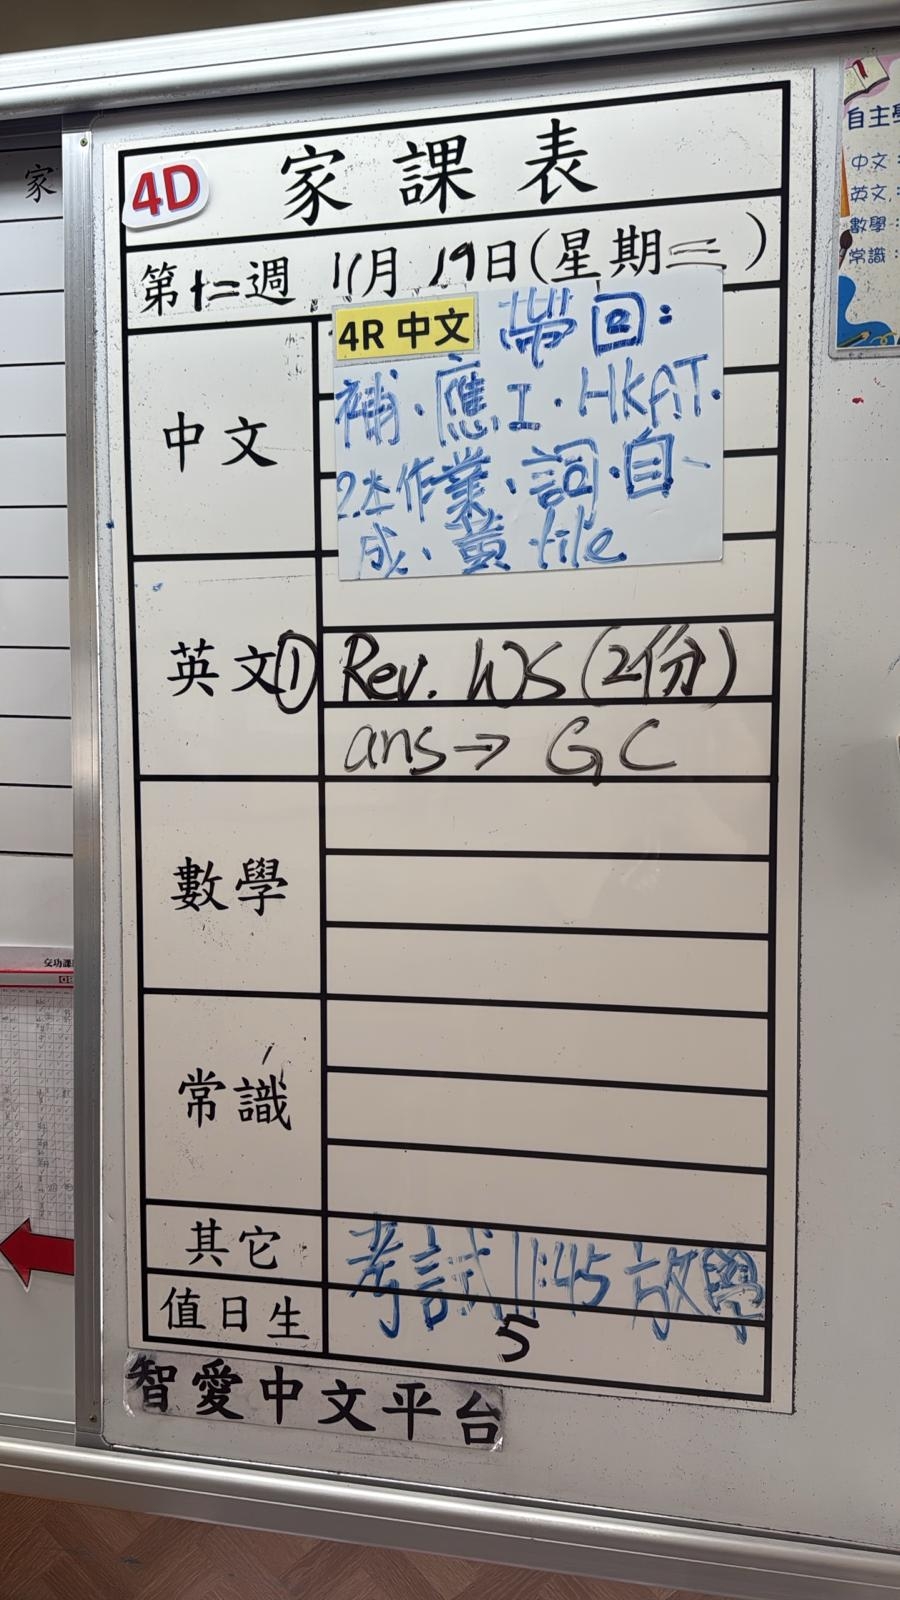 家課表
4D
第十二週 11月19日(星期三)
4R 中文 帶回:
補.應工.HKAT.
2本作業.詞.自、
成、黃 file
中文
英文 ① Rev. WS (2份)
ans → GC
數學
常識
其它 考試11:45放學
值日生 5
智愛中文平台
家
交功課
自主學
中文:
英文:
數學:
常識: